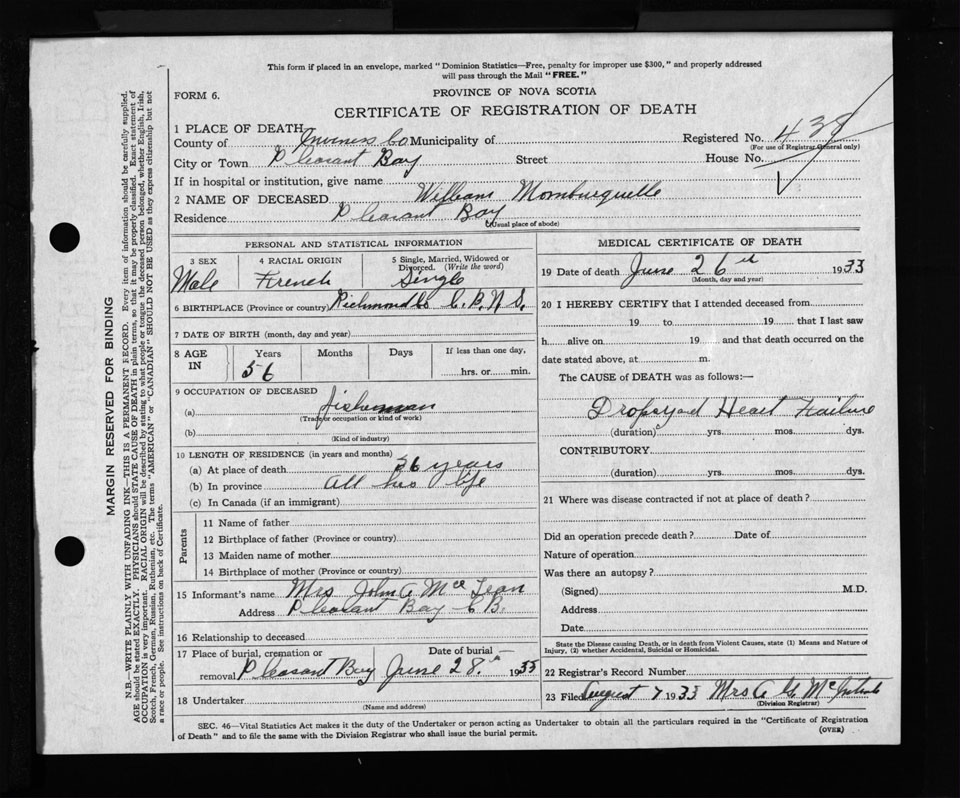 This form if placed in an envelope, marked "Dominion Statistics—Free, penalty for improper use $300," and properly addressed
will pass through the Mail "FREE."
FORM 6.
PROVINCE OF NOVA SCOTIA
CERTIFICATE OF REGISTRATION OF DEATH
1 PLACE OF DEATH
County of Inverness Co Municipality of
Registered No. 438
(For use of Registrar General only)
City or Town Pleasant Bay Street House No.
If in hospital or institution, give name
2 NAME OF DECEASED William Mombourquette
Residence Pleasant Bay
(Usual place of abode)
PERSONAL AND STATISTICAL INFORMATION
3 SEX 4 RACIAL ORIGIN 5 Single, Married, Widowed or Divorced. (Write the word)
Male French Single
6 BIRTHPLACE (Province or country) Richmond Co C. B. N. S.
7 DATE OF BIRTH (month, day and year)
8 AGE IN Years Months Days If less than one day,
56 hrs. or min.
9 OCCUPATION OF DECEASED
(a) fisherman
(Trade or occupation or kind of work)
(b)
(Kind of industry)
10 LENGTH OF RESIDENCE (in years and months)
(a) At place of death 36 years
(b) In province all his life
(c) In Canada (if an immigrant)
Parents
11 Name of father
12 Birthplace of father (Province or country)
13 Maiden name of mother
14 Birthplace of mother (Province or country)
15 Informant's name Mrs John A McLean
Address Pleasant Bay C B.
16 Relationship to deceased
17 Place of burial, cremation or removal Pleasant Bay Date of burial June 28th 1933
18 Undertaker
(Name and address)
MEDICAL CERTIFICATE OF DEATH
19 Date of death June 26th 1933
(Month, day and year)
20 I HEREBY CERTIFY that I attended deceased from
19 to 19 that I last saw
h alive on 19 and that death occurred on the
date stated above, at m.
The CAUSE of DEATH was as follows:—
Dropsy and Heart Failure
(duration) yrs. mos. dys.
CONTRIBUTORY
(duration) yrs. mos. dys.
21 Where was disease contracted if not at place of death?
Did an operation precede death? Date of
Nature of operation
Was there an autopsy?
(Signed) M.D.
Address
Date
State the Disease causing Death, or in death from Violent Causes, state (1) Means and Nature of
Injury, (2) whether Accidental, Suicidal or Homicidal.
22 Registrar's Record Number
23 Filed August 7 1933 Mrs A G
(Division Registrar)
SEC. 46—Vital Statistics Act makes it the duty of the Undertaker or person acting as Undertaker to obtain all the particulars required in the "Certificate of Registration
of Death" and to file the same with the Division Registrar who shall issue the burial permit.
(OVER)
MARGIN RESERVED FOR BINDING
N.B.—WRITE PLAINLY WITH UNFADING INK—THIS IS A PERMANENT RECORD. Every item of information should be carefully supplied.
AGE should be stated EXACTLY. PHYSICIANS should STATE CAUSE OF DEATH in plain terms, so that it may be properly classified. Exact statement of
OCCUPATION is very important. RACIAL ORIGIN will be described by stating to what people or tongue the deceased person belonged, whether English, Irish,
Scotch, French, German, Russian, Ruthenian, etc. The terms "AMERICAN" or "CANADIAN" SHOULD NOT BE USED as they express citizenship but not
a race or people. See instructions on back of Certificate.